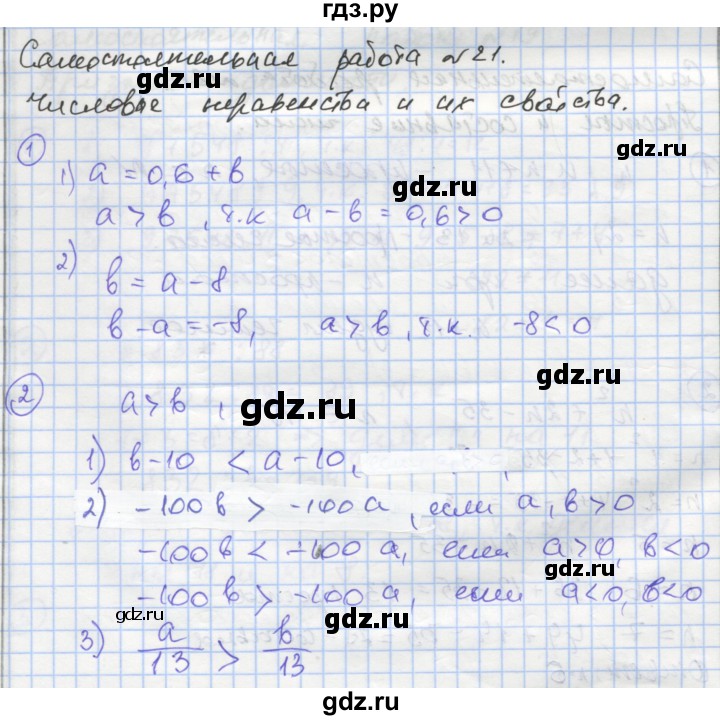 гдз.ру
Самостоятельная работа №21.
Числовые неравенства и их свойства.
1
1) a = 0,6 + в
gdz.ru
a > в, т.к a - в = 0,6 > 0
2) в = a - 8
gdz.ru
в - a = -8, a > в, т.к. -8 < 0
2 a > в,
gdz.ru
1) в - 10 < a - 10,
2) -100в > -100a, если a, в > 0
-100в < -100a, если a > 0, в < 0
gdz.ru
-100в > -100a, если a < 0, в < 0
gdz.ru
gdz.ru
gdz.ru
3) a/13 > в/13
gdz.ru